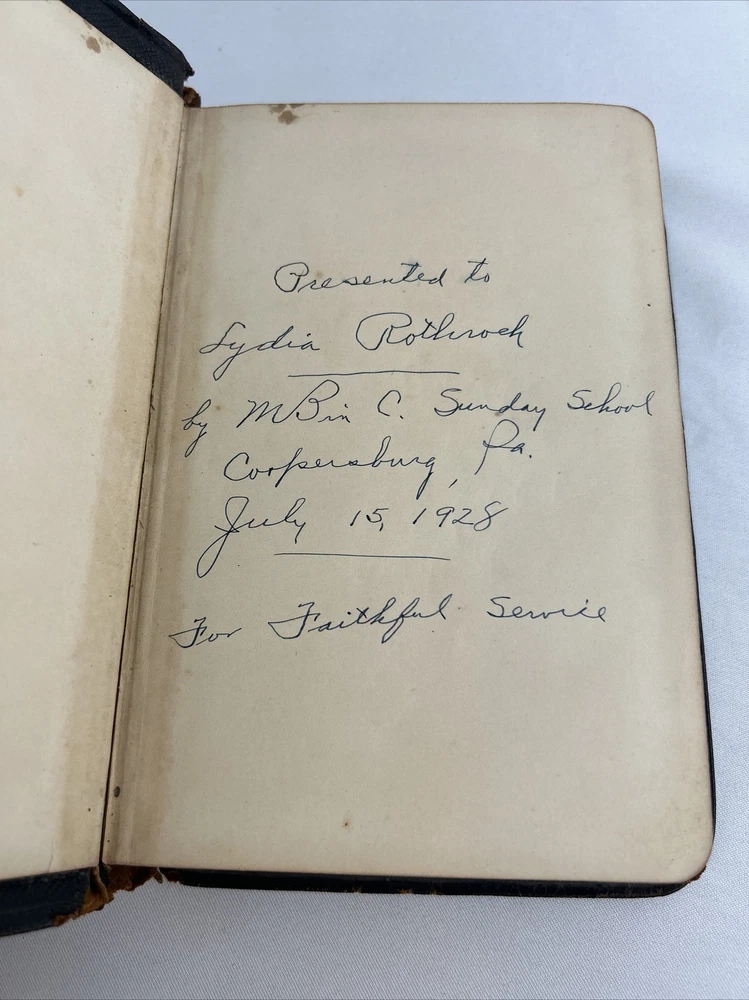 Presented to
Lydia Rothrock
by M B in C. Sunday School
Coopersburg, Pa.
July 15, 1928
For Faithful Service